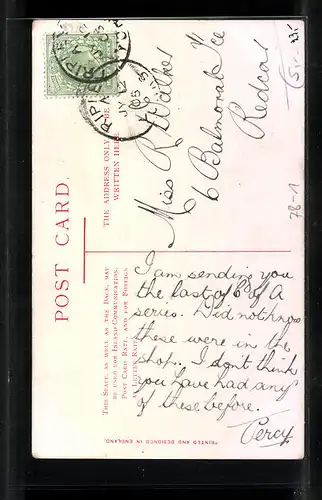 POST CARD.
THE ADDRESS ONLY TO BE
WRITTEN HERE
THIS SPACE, AS WELL AS THE BACK, MAY
BE USED FOR INLAND COMMUNICATION.
POST CARD RATE, AND FOR FOREIGN
AT LETTER RATE.
Miss R Walker
6 Balmoral Tce
Redcar
I am sending you
the last of C of A
series. Did not know
these were in the
shop.. I don't think
you have had any
of these before.
Percy
PRINTED AND DESIGNED IN ENGLAND.
RIPLEY
JY 12
05
78-1